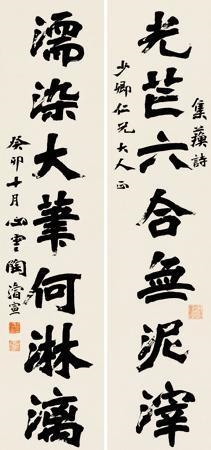 光芒六合無泥滓
集蘇詩
少卿仁兄大人正
濡染大筆何淋漓
癸卯十月心雲陶濬宣